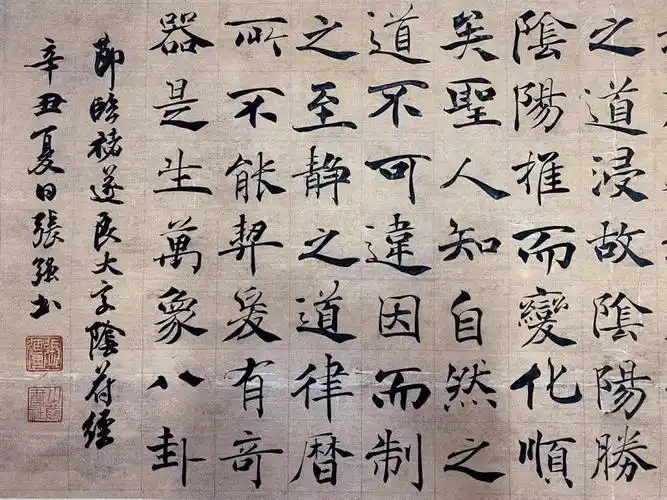 之道浸故陰陽勝
陰陽推而變化順
矣聖人知自然之
道不可違因而制
之至静之道律曆
所不能契爰有奇
器是生萬象八卦
節臨褚遂良大字陰符經
辛丑夏日張強書